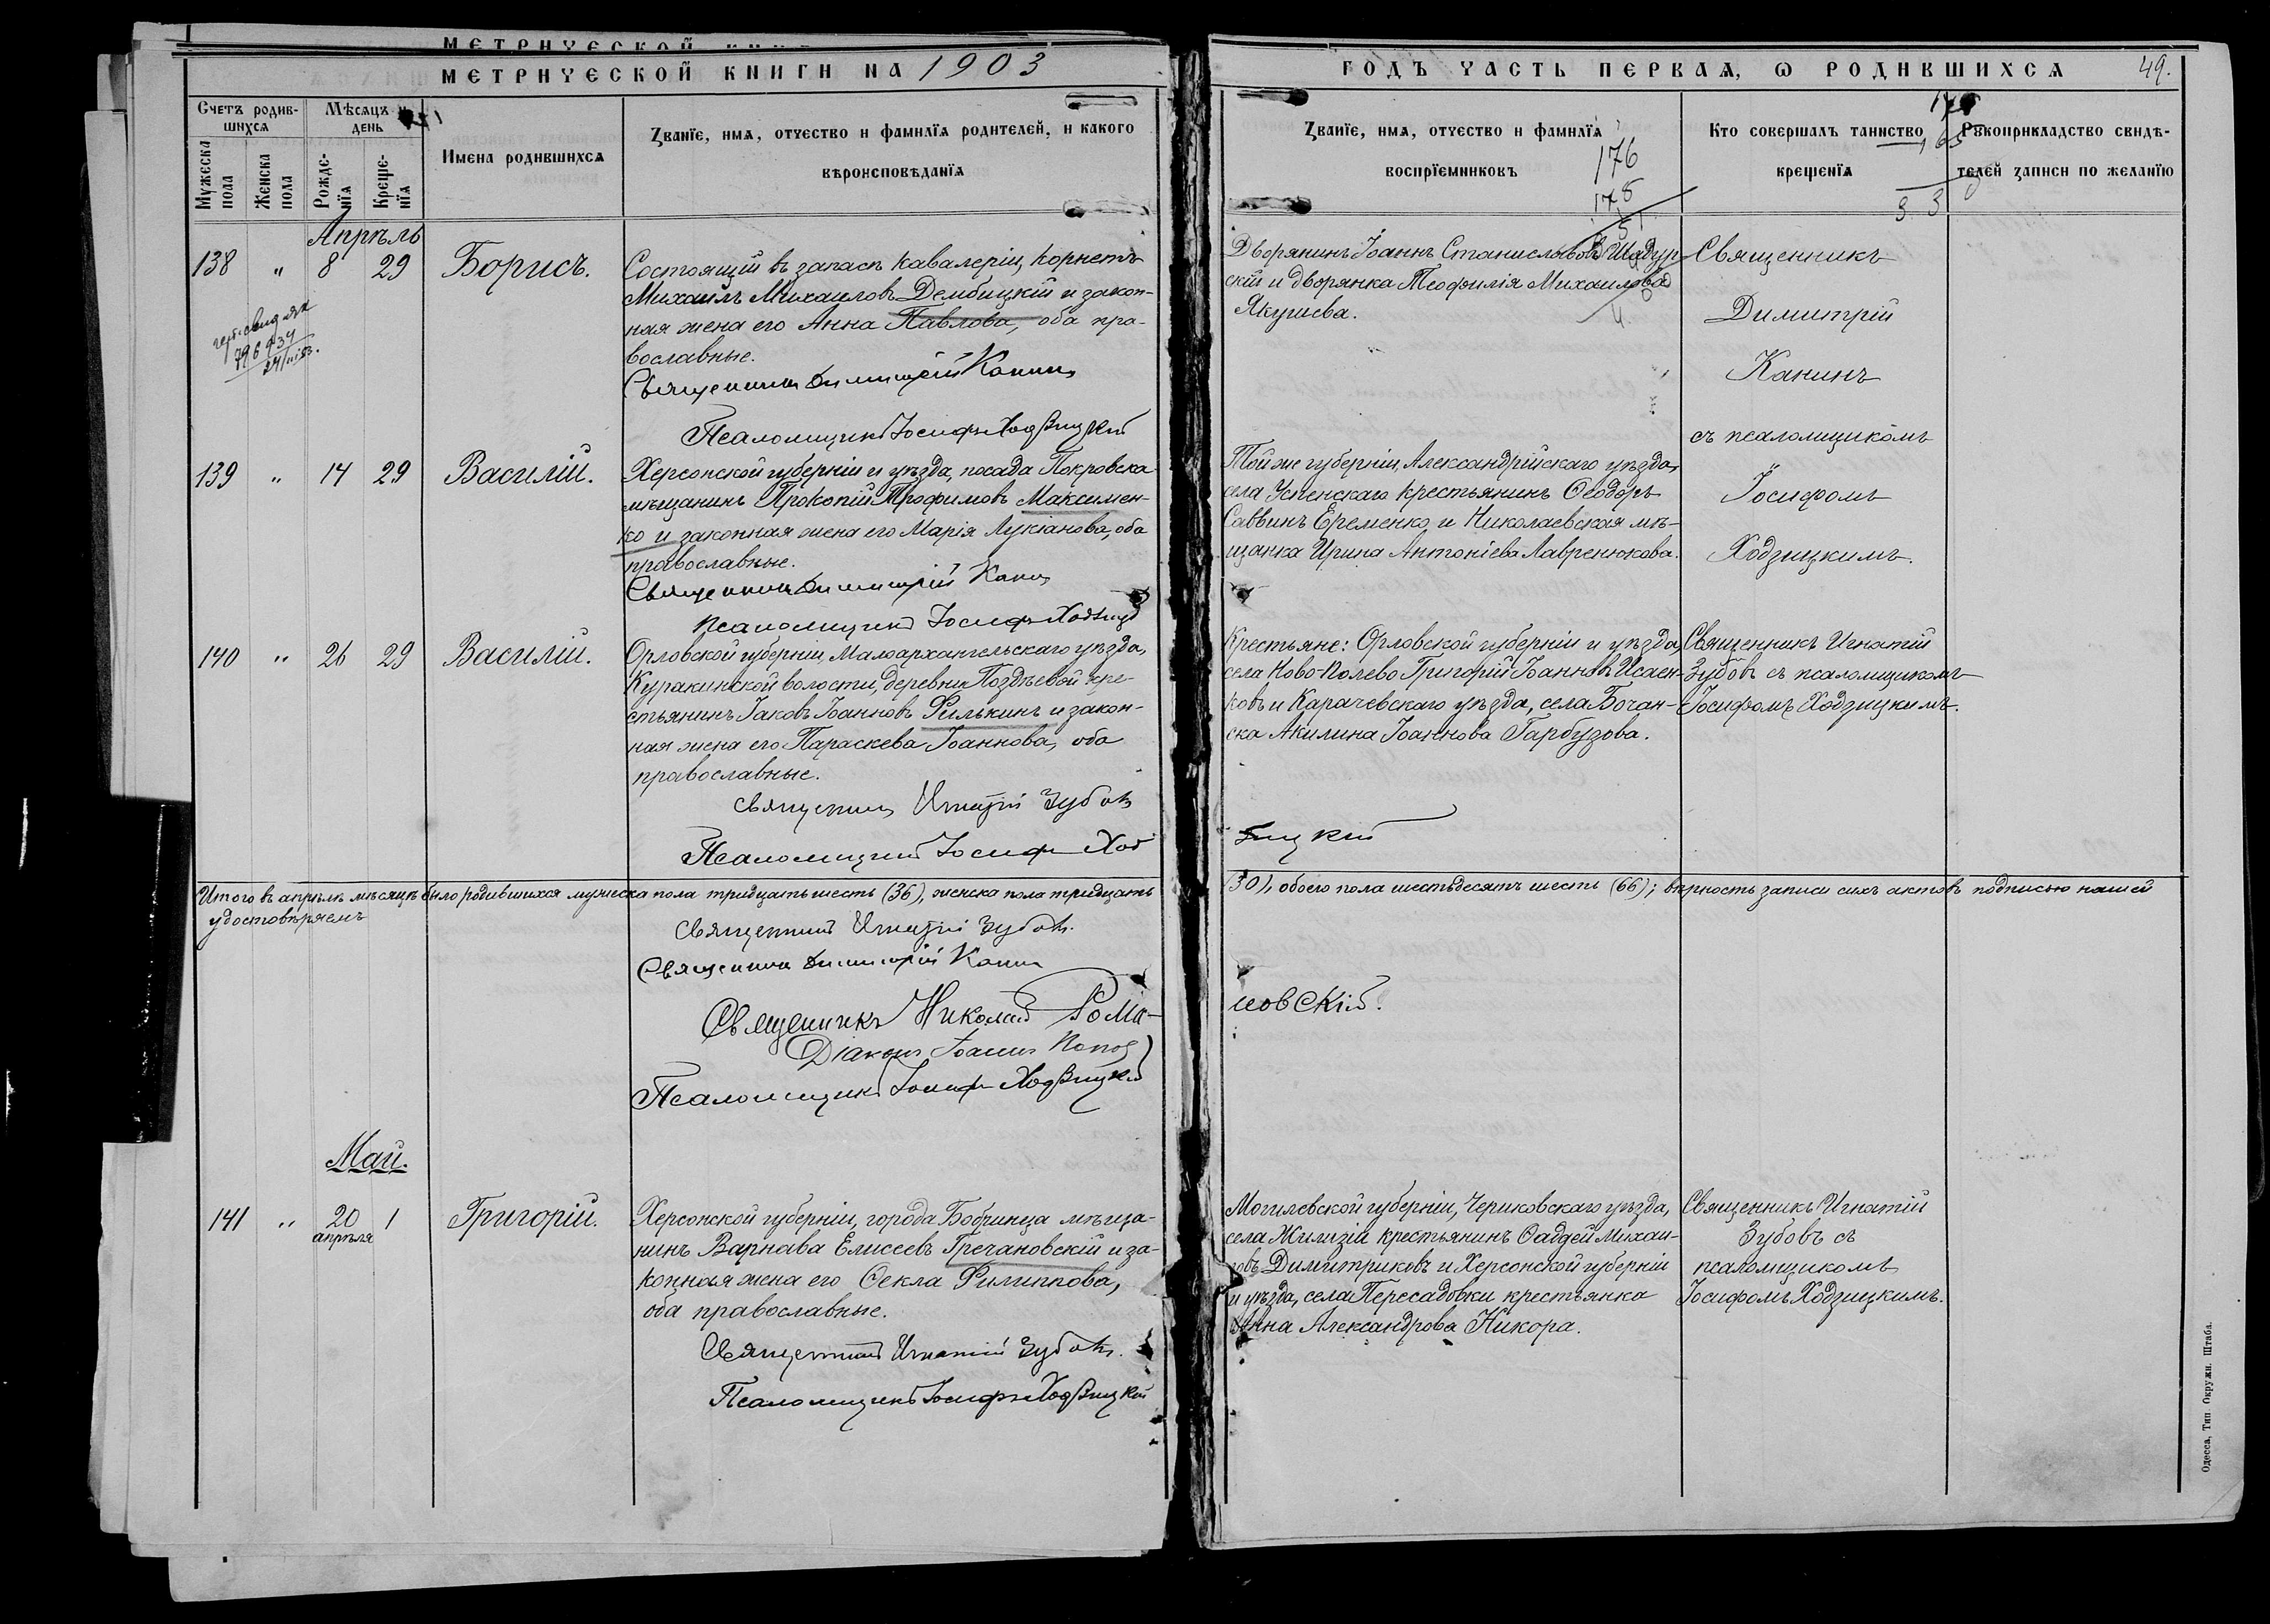 МЕТРИЧЕСКОЙ
МЕТРИЧЕСКОЙ КНИГИ НА 1903
Счетъ родив-
шихся
Мѣсяцъ и
день
Мужеска
пола
Женска
пола
Рожде-
нія
Креще-
нія
Имена родившихся
Званїе, имя, отчество и фамилїя родителей, и какого
вѣроисповѣданїя
Апрѣль
138 " 8 29 Борисъ.
Состоящій въ запасѣ кавалеріи, корнетъ
Михаилъ Михаиловъ Дембицкій и закон-
ная жена его Анна Павлова, оба пра-
вославные.
Священникъ Димитрій Канинъ
Псаломщикъ Іосифъ Ходзицкій
139 " 14 29 Василій.
Херсонской губерніи и уѣзда, посада Покровска
мѣщанинъ Прокопій Трофимовъ Максимен-
ко и законная жена его Марія Лукіанова, оба
православные.
Священникъ Димитрій Канинъ
Псаломщикъ Іосифъ Ходзицкій
140 " 26 29 Василій.
Орловской губерніи, Малоархангельскаго уѣзда,
Куракинской волости, деревни Поздѣевой кре-
стьянинъ Іаковъ Іоанновъ Филькинъ и закон-
ная жена его Параскева Іоаннова, оба
православные.
Священникъ Игнатій Зубовъ
Псаломщикъ Іосифъ Ход
Итого въ апрѣлѣ мѣсяцѣ было родившихся мужеска пола тридцать шесть (36), женска пола тридцать
удостовѣряемъ
Священникъ Игнатій Зубовъ.
Священникъ Димитрій Канинъ
Священникъ Николай Рома-
Діаконъ Іоаннъ Попов
Псаломщикъ Іосифъ Ходзицкій
Май.
141 " 20 1 Григорій.
апрѣля
Херсонской губерніи, города Бобринца мѣща-
нинъ Варнава Елисеевъ Гречановскій и за-
конная жена его Ѳекла Филиппова,
оба православные.
Священникъ Игнатій Зубовъ.
Псаломщикъ Іосифъ Ходзицкій
ГОДЪ ЧАСТЬ ПЕРВАЯ, Ѡ РОДИВШИХСЯ 49.
Званїе, имя, отчество и фамилїя
воспрїемниковъ
176
178
Кто совершалъ таинство
крещенїя
Рукоприкладство свидѣ-
телей записи по желанїю
Дворянинъ Іоаннъ Станиславовъ Шадур-
скій и дворянка Теофилія Михаилова
Якушева.
Священникъ
Димитрій
Канинъ
съ псаломщикомъ
Іосифомъ
Ходзицкимъ.
Той же губерніи, Александрійскаго уѣзда,
села Успенскаго крестьянинъ Ѳеодоръ
Саввинъ Еременко и Николаевская мѣ-
щанка Ирина Антоніева Лавренюкова.
Крестьяне: Орловской губерніи и уѣзда,
села Ново-Полево Григорій Іоанновъ Исаен-
ковъ и Карачевскаго уѣзда, села Бочан-
ска Акилина Іоаннова Гарбузова.
Священникъ Игнатій
Зубовъ съ псаломщикомъ
Іосифомъ Ходзицкимъ.
зицкій
(30), обоего пола шестьдесятъ шесть (66); вѣрность записи сихъ актовъ подписью нашей
новскій.
Могилевской губерніи, Чериковскаго уѣзда,
села Жилизія крестьянинъ Ѳаддей Михаи-
ловъ Димитриковъ и Херсонской губерніи
и уѣзда, села Пересадовки крестьянка
Анна Александрова Никора.
Священникъ Игнатій
Зубовъ съ
псаломщикомъ
Іосифомъ Ходзицкимъ.
Одесса, Тип. Окружн. Штаба.